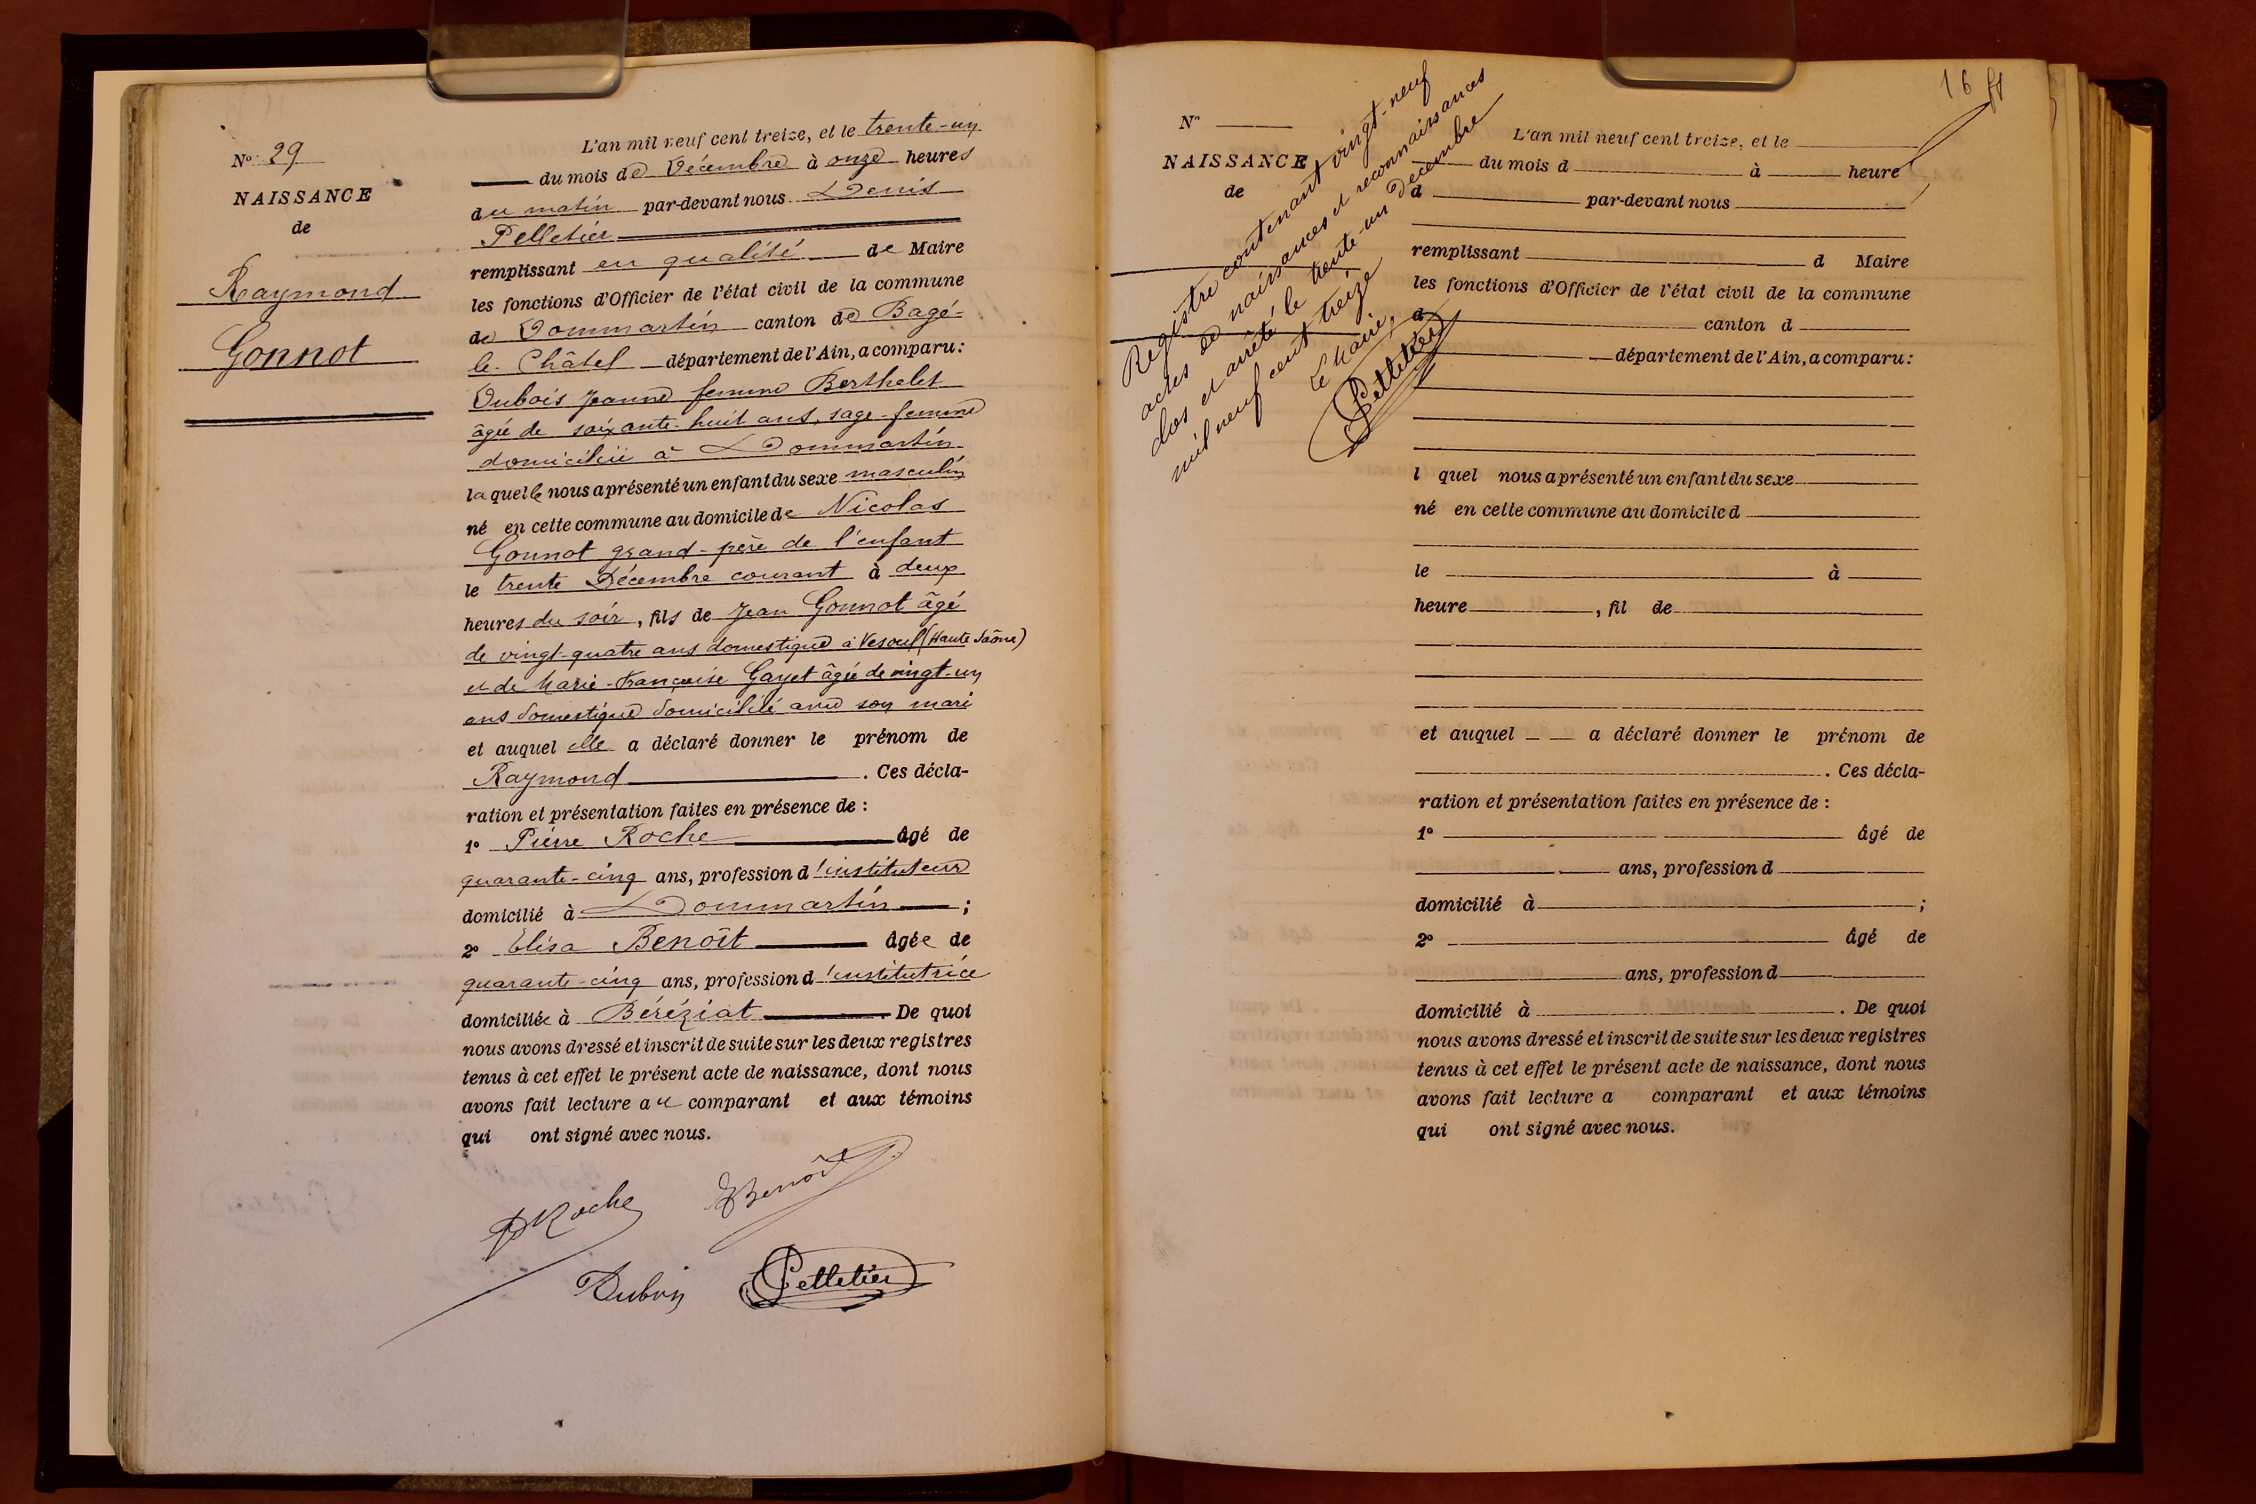 N° 29
NAISSANCE
de
Raymond
Gonnot
L'an mil neuf cent treize, et le trente-un
du mois de Décembre à onze heures
du matin par-devant nous Denis
Pelletier
remplissant en qualité de Maire
les fonctions d'Officier de l'état civil de la commune
de Dommartin canton de Bagé-
le-Châtel département de l'Ain, a comparu:
Dubois Jeanne femme Berthelet
âgée de soixante-huit ans, sage-femme
domiciliée à Dommartin
laquelle nous a présenté un enfant du sexe masculin
né en cette commune au domicile de Nicolas
Gonnot grand-père de l'enfant
le trente Décembre courant à deux
heures du soir, fils de Jean Gonnot âgé
de vingt-quatre ans domestique à Vesoul (Haute Saône)
et de Marie-Françoise Gayet âgée de vingt-un
ans domestique domiciliée avec son mari
et auquel elle a déclaré donner le prénom de
Raymond . Ces décla-
ration et présentation faites en présence de :
1° Pierre Roche âgé de
quarante-cinq ans, profession d'instituteur
domicilié à Dommartin ;
2° Elisa Benoît âgée de
quarante-cinq ans, profession d'institutrice
domiciliée à Béréziat . De quoi
nous avons dressé et inscrit de suite sur les deux registres
tenus à cet effet le présent acte de naissance, dont nous
avons fait lecture au comparant et aux témoins
qui ont signé avec nous.
P Roche
E Benoît
Dubois
Pelletier
16
N°
NAISSANCE
de
Registre contenant vingt-neuf
actes de naissances et reconnaissances
clos et arrêté le trente-un Décembre
mil neuf cent treize
Le Maire,
Pelletier
L'an mil neuf cent treize, et le
du mois d à heure
d par-devant nous
remplissant d Maire
les fonctions d'Officier de l'état civil de la commune
d canton d
département de l'Ain, a comparu:
l quel nous a présenté un enfant du sexe
né en cette commune au domicile d
le à
heure , fil de
et auquel a déclaré donner le prénom de
. Ces décla-
ration et présentation faites en présence de :
1° âgé de
ans, profession d
domicilié à ;
2° âgé de
ans, profession d
domicilié à . De quoi
nous avons dressé et inscrit de suite sur les deux registres
tenus à cet effet le présent acte de naissance, dont nous
avons fait lecture a comparant et aux témoins
qui ont signé avec nous.